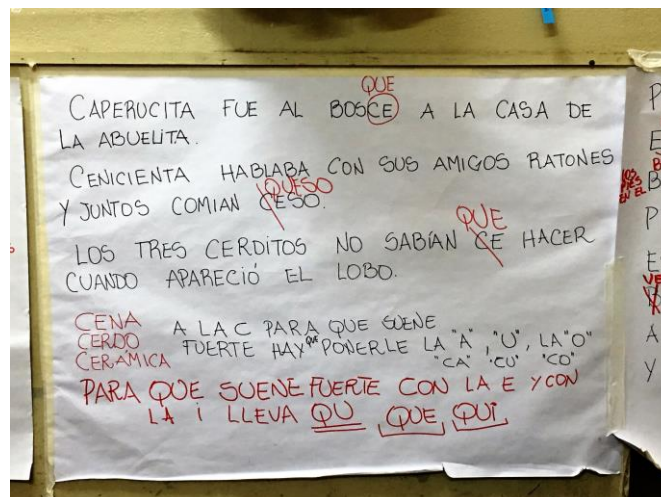 QUE
CAPERUCITA FUE AL BOSCE A LA CASA DE
LA ABUELITA.
CENICIENTA HABLABA CON SUS AMIGOS RATONES
QUESO
Y JUNTOS COMIAN CESO.
QUE
LOS TRES CERDITOS NO SABÍAN CE HACER
CUANDO APARECIÓ EL LOBO.
CENA
CERDO
CERÁMICA
A LA C PARA QUE SUENE
FUERTE HAY QUE PONERLE LA "A", "U", LA "O"
"CA" "CU" "CO"
PARA QUE SUENE FUERTE CON LA E Y CON
LA i LLEVA QU QUE QUi